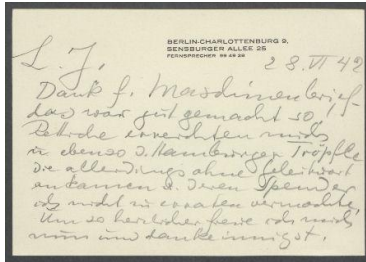 BERLIN-CHARLOTTENBURG 9,
SENSBURGER ALLEE 25
FERNSPRECHER 99 49 28
28. VI 42
L. J.
Dank f. Maschinenbrief –
das war gut gemacht so!
erreichten mich
u ebenso d. Hamburger Tröpfle
die allerdings ohne Geleitwort
ankamen u. deren Spender
ich nicht zu erraten vermochte.
Um so herzlicher freue ich mich
nun und danke innigst.